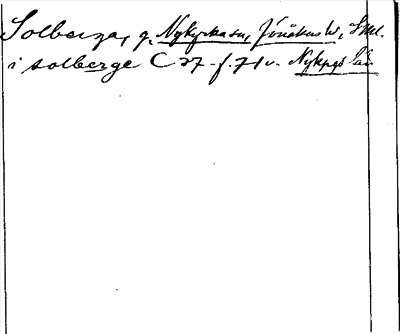 Solberga, g. Nykyrka sn, Jönåkers hd, Sml.
i solberge C 27 f. 71 v. Nykpgs län